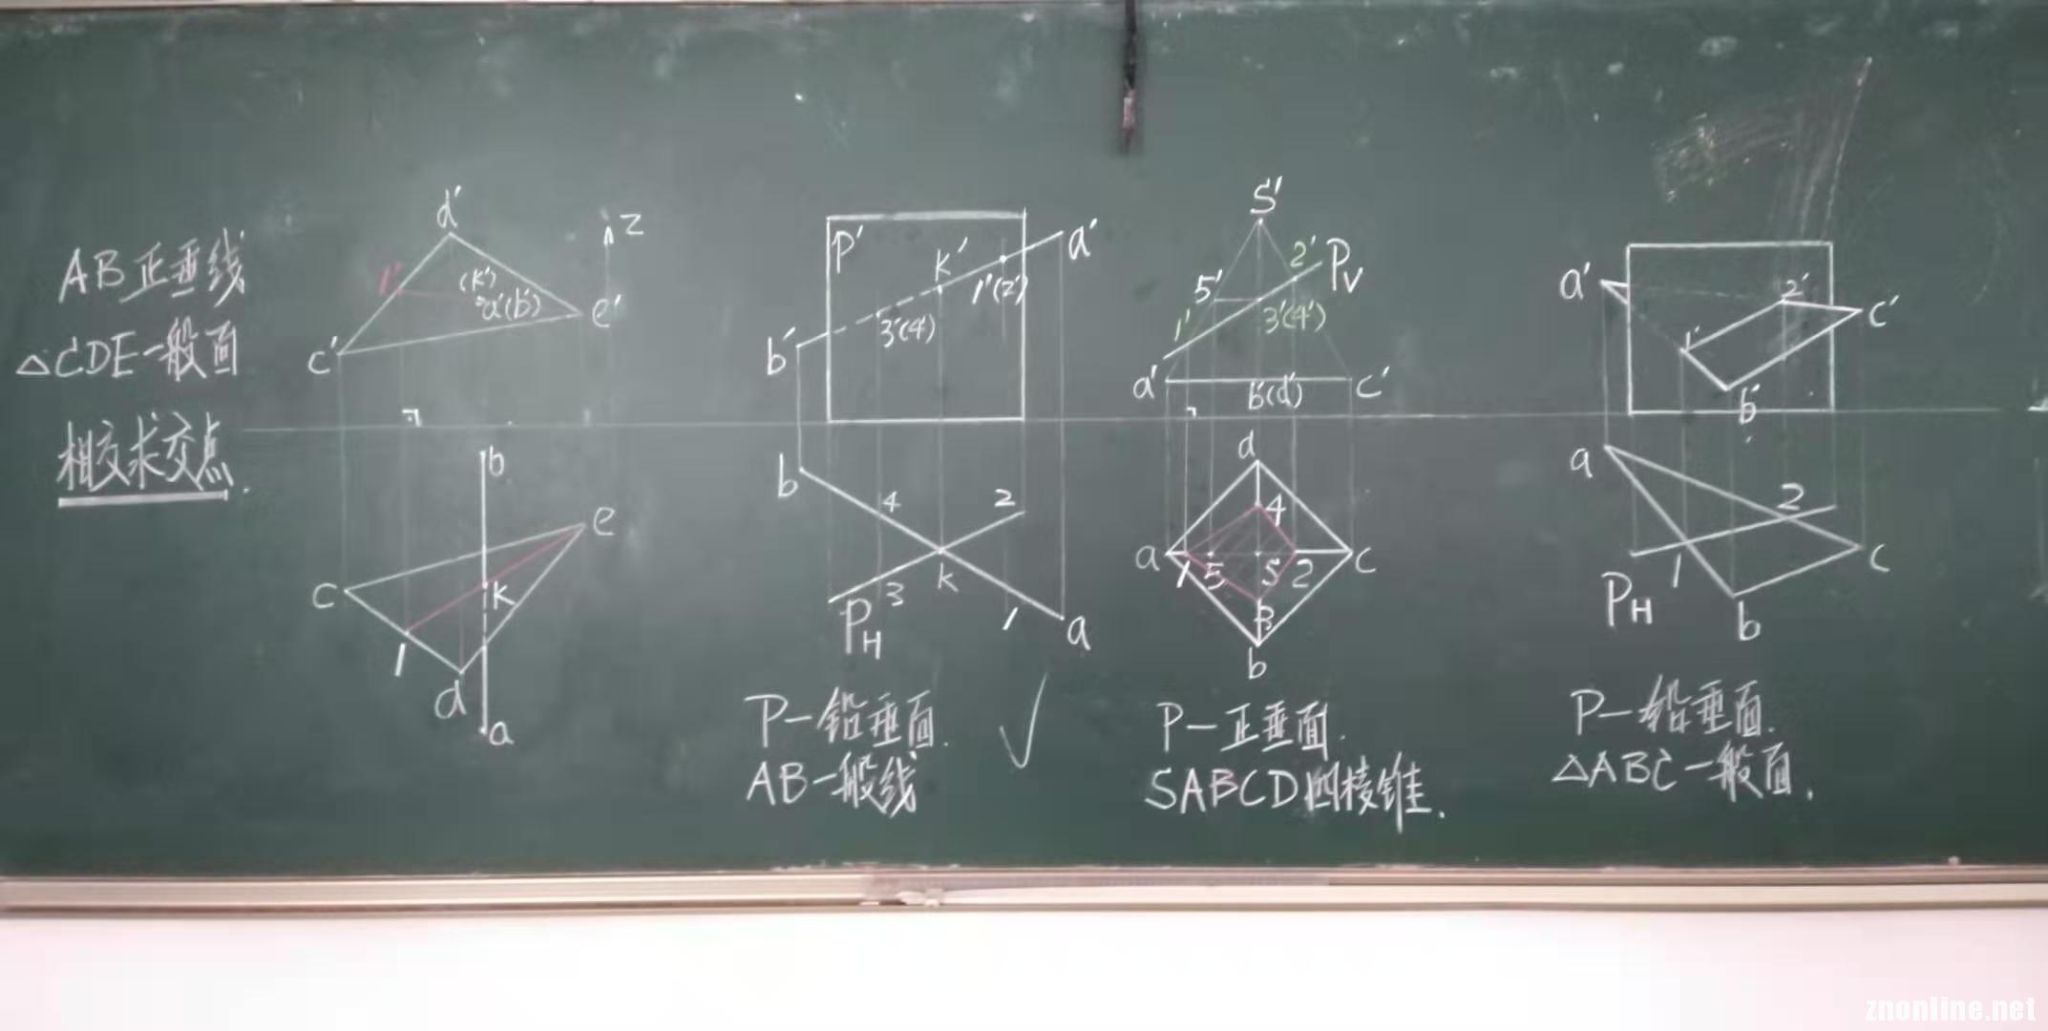 AB正垂线
△CDE一般面
相交求交点.
d'
z
1'
(k')
a'(b')
e'
c'
b
e
c
k
1
d
a
p'
k'
a'
1'(2')
3'(4')
b'
b
4
2
3
k
1
PH
a
P一铅垂面.
AB一般线
S'
2'
PV
5'
1'
3'(4')
a'
b'(d')
c'
d
4
a
1
5
S
2
c
3
b
P一正垂面.
SABCD四棱锥.
a'
2'
c'
1'
b'
a
2
1
c
PH
b
P一铅垂面.
△ABC一般面.
znonline.net